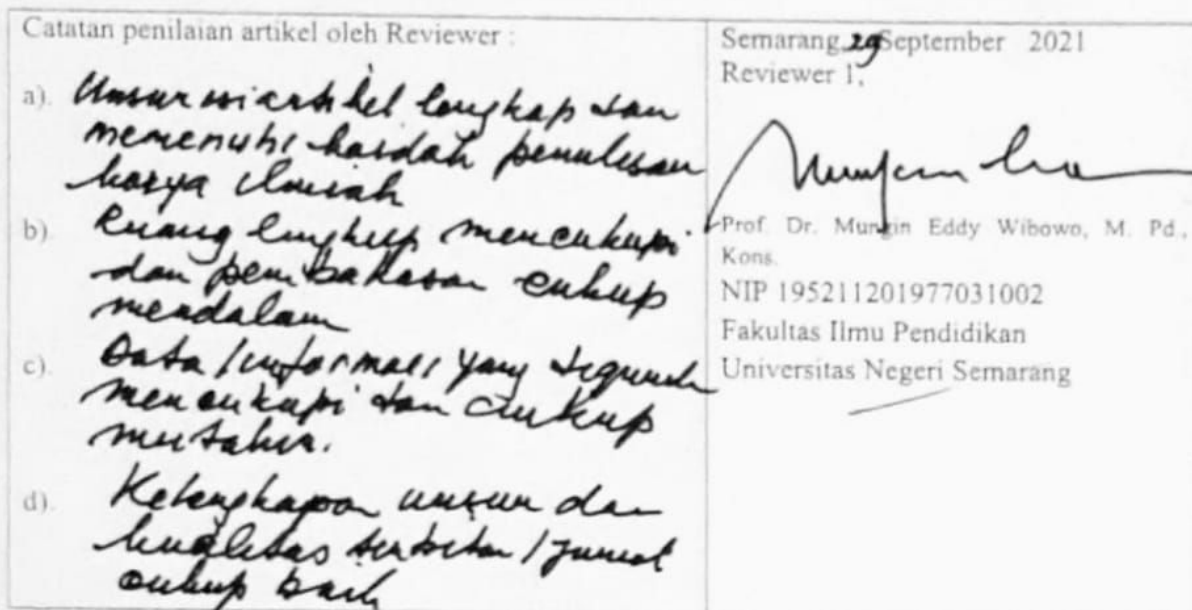 Catatan penilaian artikel oleh Reviewer :
a). Unsur isi artikel lengkap dan
memenuhi kaidah penulisan
karya ilmiah
b). Ruang lingkup mencukupi
dan pembahasan cukup
mendalam
c). Data/informasi yang digunak
mencukupi dan cukup
mutahir.
d). Kelengkapan unsur dan
kualitas terbitan/jurnal
cukup baik
Semarang, 29 September 2021
Reviewer 1,
Prof. Dr. Mungin Eddy Wibowo, M. Pd.,
Kons.
NIP 195211201977031002
Fakultas Ilmu Pendidikan
Universitas Negeri Semarang